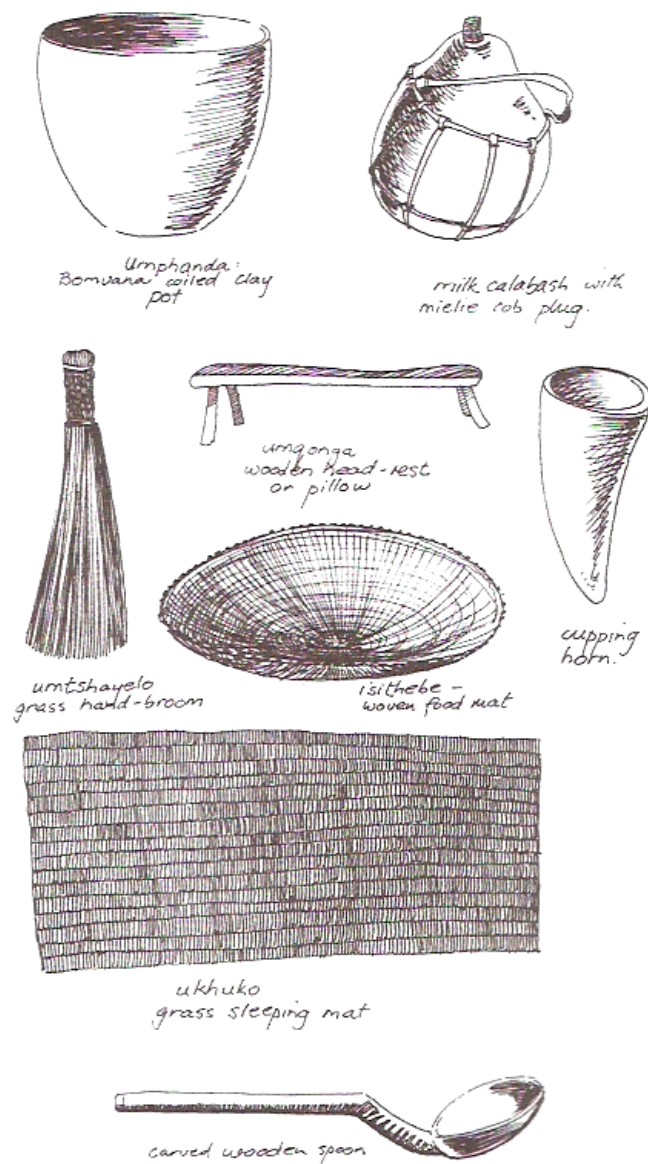 Umphanda:
Bomvana coiled clay
pot
milk calabash with
mielie cob plug.
umqonga
wooden head-rest
or pillow
cupping
horn.
umtshayelo
grass hand-broom
isithebe -
woven food mat
ukhuko
grass sleeping mat
carved wooden spoon